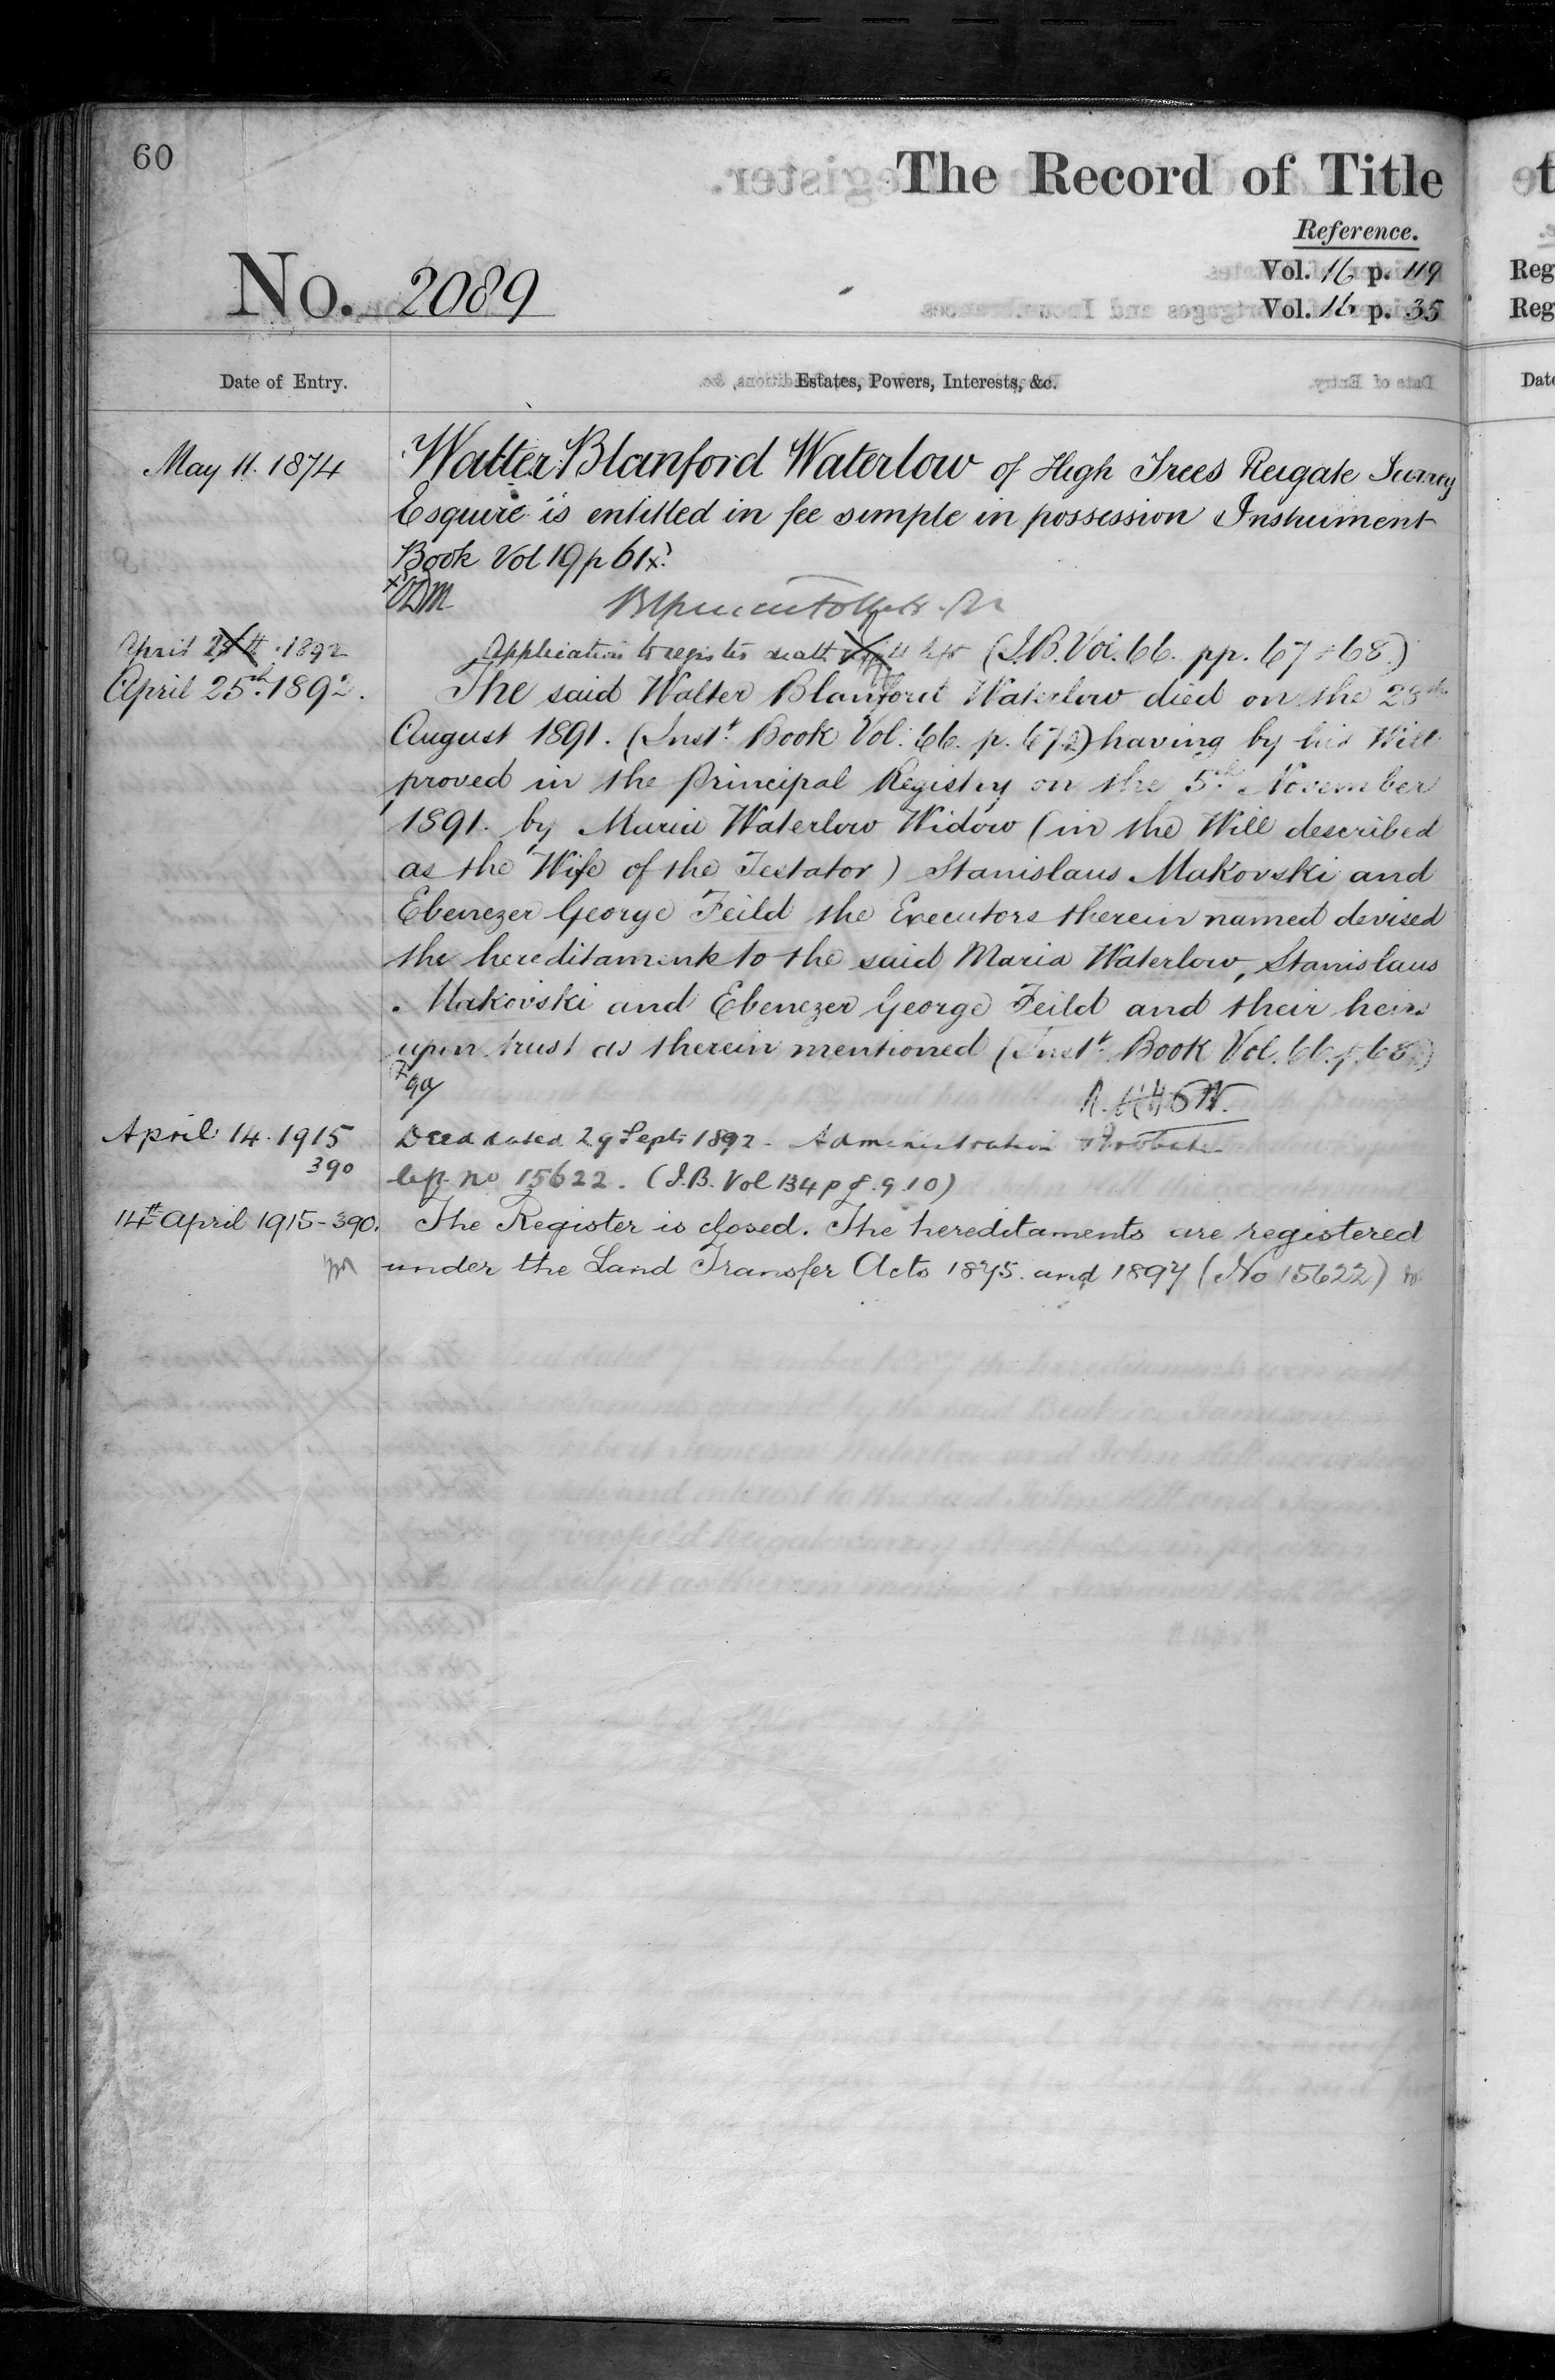 60
The Record of Title
Reference.
No. 2089
Vol. 16 p. 119
Vol. 16 p. 35
Date of Entry.
Estates, Powers, Interests, &c.
May 11. 1874
Walter Blanford Waterlow of High Trees Reigate Surrey
Esquire is entitled in fee simple in possession Instrument
Book Vol 19 p 61 x
April 1892
Application to register death left (I.B. Vol. 66. pp. 67 & 68.)
April 25th. 1892.
The said Walter Blanford Waterlow died on the 28th
August 1891. (Inst. Book Vol. 66. p. 67) having by his Will
proved in the Principal Registry on the 5th. November
1891. by Maria Waterlow Widow (in the Will described
as the Wife of the Testator) Stanislaus Makovski and
Ebenezer George Feild the Executors therein named devised
the hereditaments to the said Maria Waterlow, Stanislaus
Makovski and Ebenezer George Feild and their heirs
upon trust as therein mentioned (Inst. Book Vol. 66. p. 68)
April 14. 1915
390
Deed dated 29 Sept. 1892. Administration & Probate
left no 15622. (I.B. Vol 134 p 8. 9. 10)
14th April 1915 - 390.
The Register is closed. The hereditaments are registered
under the Land Transfer Acts 1875. and 1897 (No 15622)
t
Reg
Reg
Date